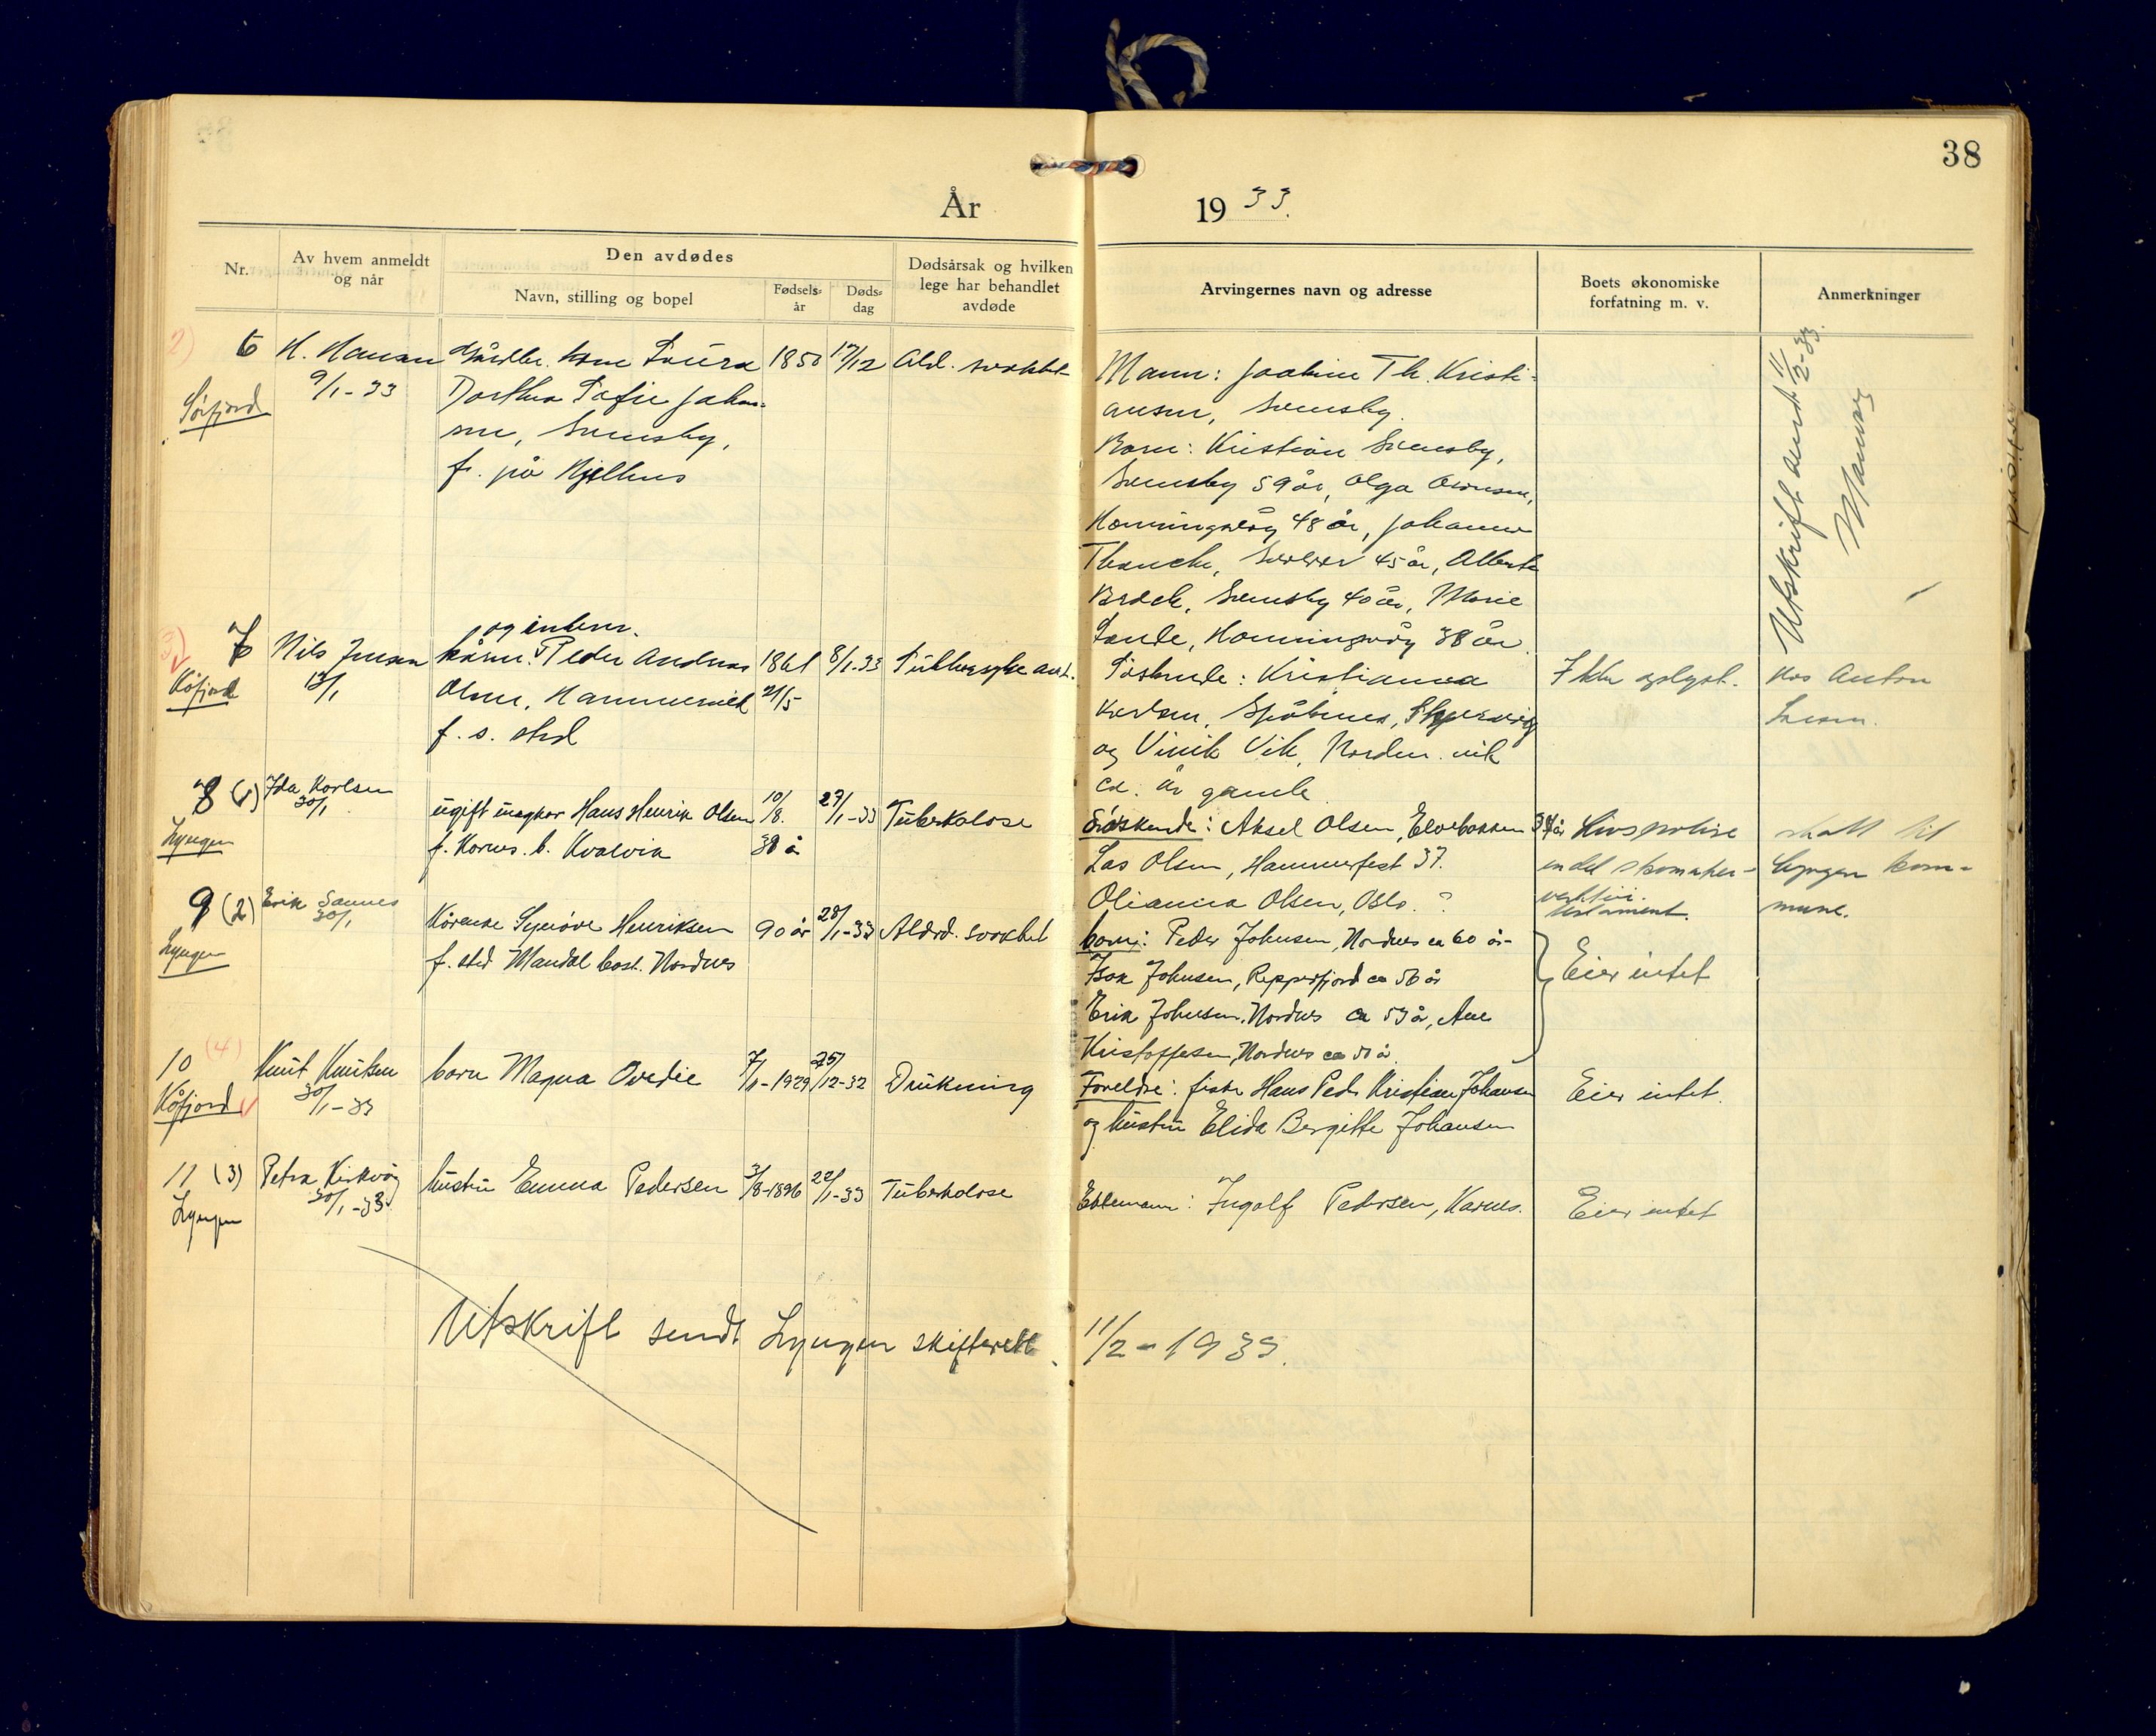 38
År 19 33.
Nr.
Av hvem anmeldt
og når
Den avdødes
Navn, stilling og bopel
Fødsels-
år
Døds-
dag
Dødsårsak og hvilken
lege har behandlet
avdøde
Arvingernes navn og adresse
Boets økonomiske
forfatning m. v.
Anmerkninger
2) 6
Sørfjord
H. Hansen
9/1-33
Gårdbr. kone Laura
Dorthea Sofie Johan-
sen, Svensby,
f. på
1850
17/12
Ald. svakhet
Mann: Joakim Th. Kristi-
ansen, Svensby.
Barn: Kristian Svensby,
Svensby 59 år, Olga
Honningsvåg 48 år, Johanne
45 år, Alberte
Brock, Svensby 40 år, Marie
Lande, Honningsvåg 38 år.
Utskrift sendt 11/2-33.
Hansen
7
Kåfjord
Nils Jensen
13/1
og inderst.
kårm. Peder Andreas
Olsen, Hammervik
f. s. sted
1861
21/5
8/1-33
Søskende: Kristianna
Karlsen, Spåkenes, Skjervøy
og Vinik Vik, Norden. vik
ca. år gamle
Ikke oplyst.
Hos Anton
Larsen.
8 (1)
Lyngen
Ida Karlsen
30/1
ugift ungkar Hans Henrik Olsen
f. Karnes. b. Kvalvik
10/8.
38 å
27/1-33
Tuberkolose
Søskende: Aksel Olsen, Elvebakken 34 år
Las Olsen, Hammerfest 37.
Olianna Olsen, Oslo. ?
Livspolise
en del skomaker-
verktøi.
testament.
skatt til
Lyngen kom-
mune.
9 (2)
Lyngen
Erik Sannes
30/1
Kårenke Synøve Henriksen
f. sted Mandal bost. Nordnes
90 år
28/1-33
Alderd. svakhet
barn: Peder Johnsen, Nordnes ca 60 år-
Isak Johnsen, Repperfjord ca 56 år
Erik Johnsen, Nordnes ca 53 år, Ane
Kristoffersen, Nordnes ca 50 år
Eier intet
10 (4)
Kåfjord
Knut Knutsen
30/1-33
barn Magna Ovedie
7/1-1929
25/12-32
Drukning
Foreldre: fisker Hans Peder Kristian Johansen
og hustru Elida Bergitte Johansen
Eier intet.
11 (3)
Lyngen
Petra Kirkvåg
30/1-33
hustru Emma Pedersen
3/8-1896
22/1-33
Tuberkolose
Ektemann: Ingolf Pedersen, Karnes.
Eier intet
Utskrift sendt Lyngen skifterett. 11/2-1933.